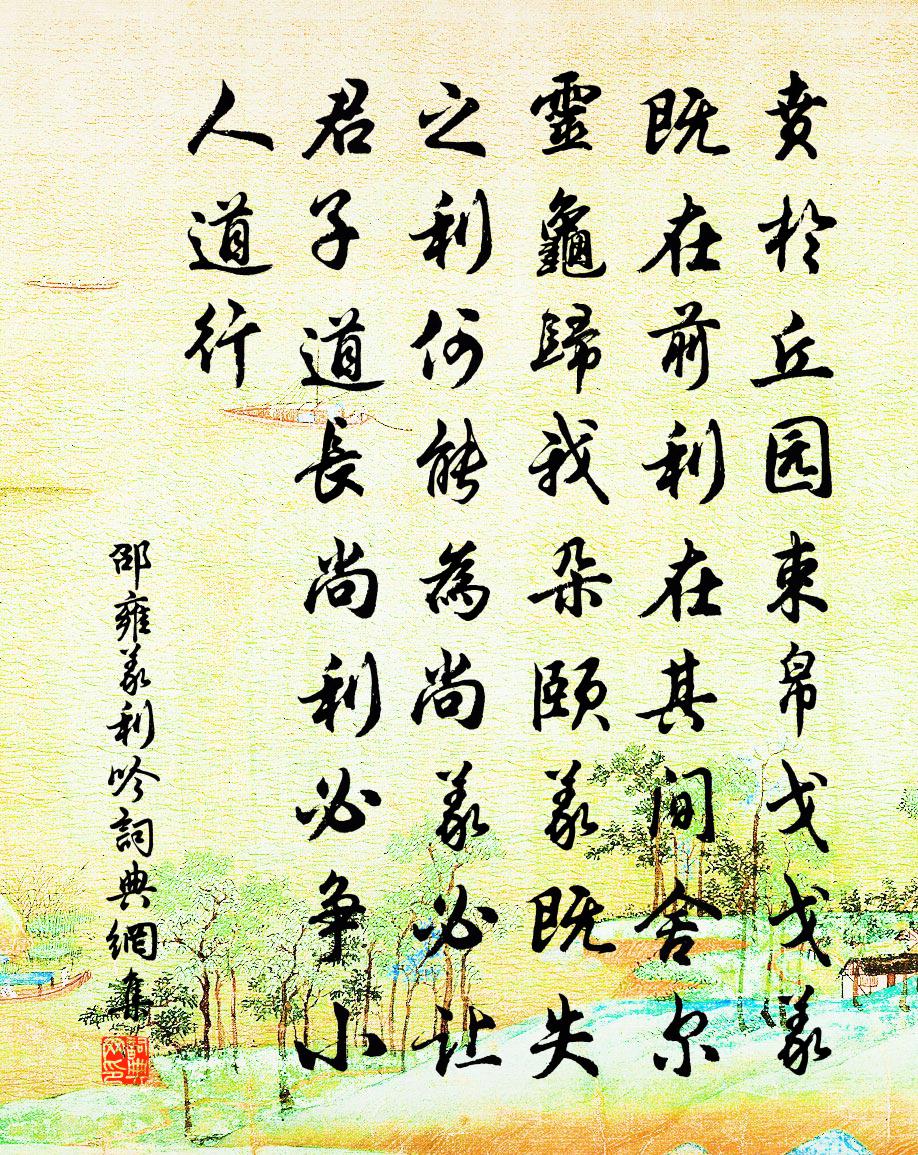 贲於丘园束帛戋戋義
既在前利在其间舍尔
靈龜歸我朵颐義既失
之利何能為尚義必让
君子道長尚利必争小
人道行
邵雍義利吟詞典網集